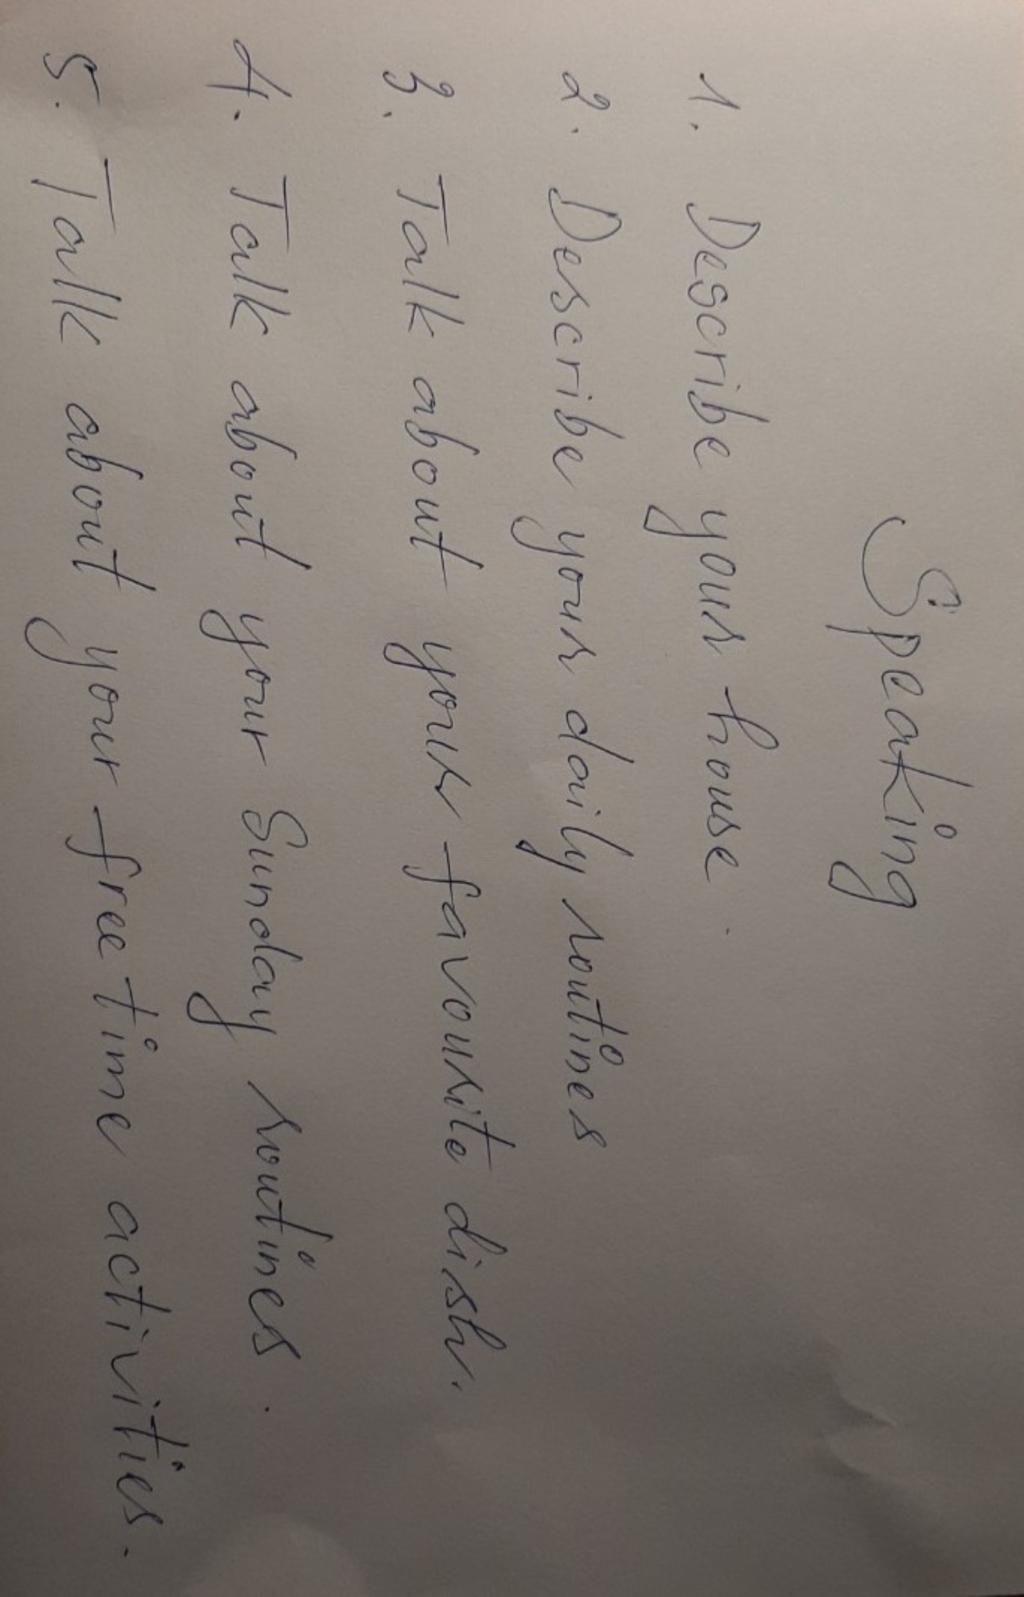 Speaking
1. Describe your house.
2. Describe your daily routines
3. Talk about your favourite dish.
4. Talk about your Sunday routines.
5. Talk about your free time activities.